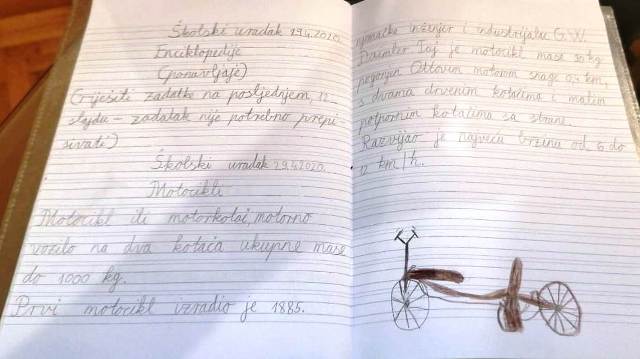 Školski uradak 19.4.2020.
Enciklopedije
(ponavljaje)
(riješiti zadatke na posljednjem, 12.
slajdu - zadatak nije potrebno prepi
sivati)
Školski uradak 29.4.2020.
Motocikli
Motocikl ili motorkotač, motorno
vozilo na dva kotača ukupne mase
do 1000 kg.
Prvi motocikl izradio je 1885.
njemački inženjer i industrijalac G.W.
Daimler. Taj je motocikl mase 90 kg
pogonjen Ottovim motorom snage 0,5 km,
s dvama drvenim kotačima i malim
potpornim kotačima sa strane.
Razvijao je najveću brzinu od 6 do
12 km/h.